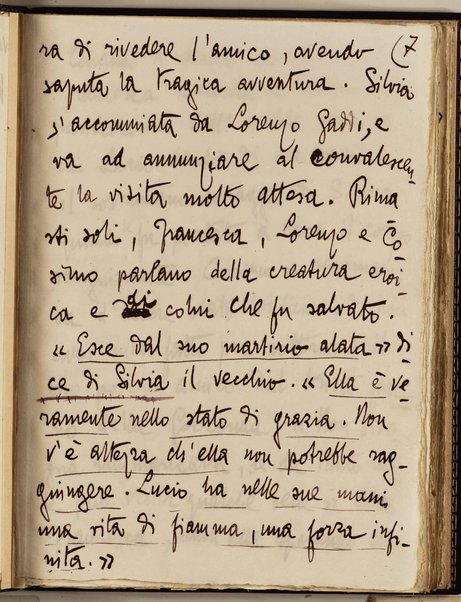 ra di rivedere l'amico, avendo (7
saputa la tragica avventura. Silvia
s'accommiata da Lorenzo Gaddi, e
va ad annunziare al convalescen-
te la visita molto attesa. Rima
sti soli, Francesca, Lorenzo e Co-
simo parlano della creatura eroi-
ca e di colui che fu salvato.
« Esce dal suo martirio alata » di
ce di Silvia il vecchio. « Ella è ve-
ramente nello stato di grazia. Non
v'è altezza ch'ella non potrebbe rag-
giungere. Lucio ha nelle sue mani
una vita di fiamma, una forza infi-
nita. »